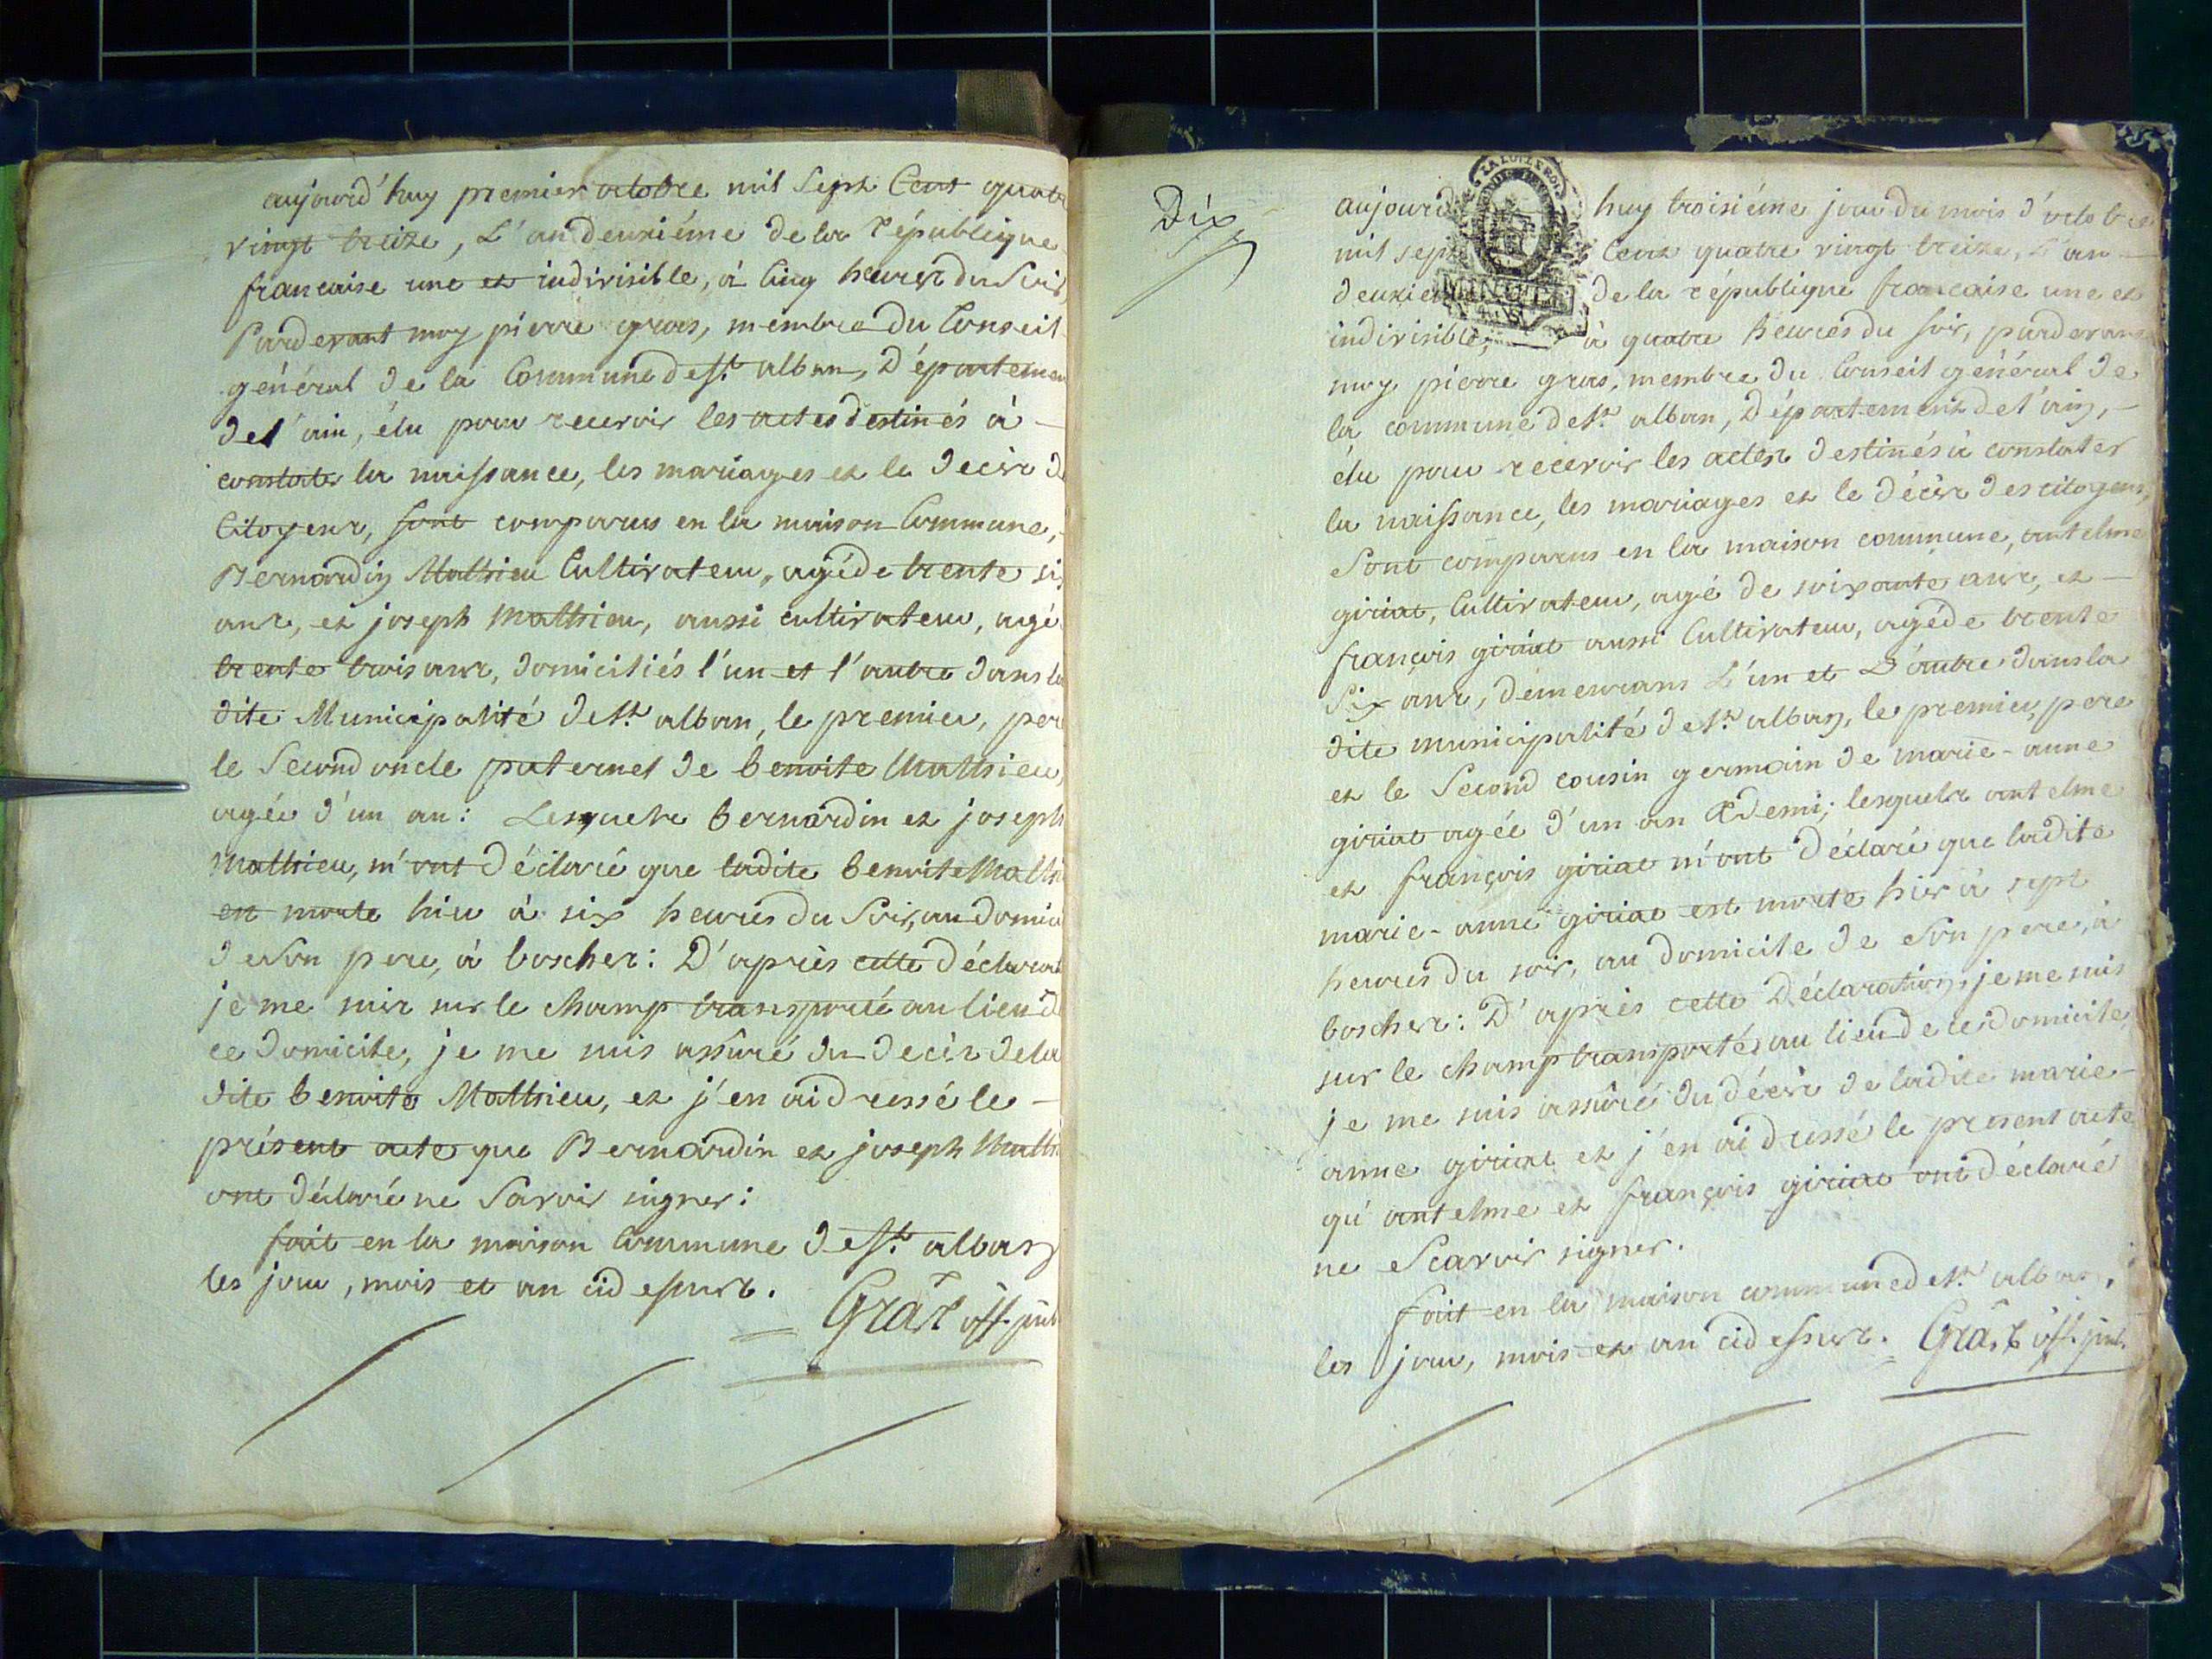 aujourd'huy premier octobre mil sept Cent quatre
vingt treize, L'an deuxiéme de la république
francaise une et indivisible, à Cinq heures du Soir,
Pardevant moy pierre gras, membre du Conseil
général de la Commune de st. alban, Départemen
de l'ain, élu pour recevoir les actes destinés à
constater la naissance, les mariages et le decès de
Citoyens, sont comparus en la maison Commune,
Bernardin Mathieu Cultivateur, agé de trente six
ans, et joseph Mathieu, aussi cultivateur, agé
trente trois ans, domiciliés l'un et l'autre dans la
dite Municipalité de st. alban, le premier, pere
le Second oncle paternel de benoite Mathieu,
agée d'un an: Lesquels bernardin et joseph
Mathieu, m'ont déclaré que ladite benoite Mathi
est morte hier à six heures du Soir, au domici
de Son pere, à boscher: D'après cette déclarat
je me suis sur le champ transporté au lieu de
ce domicile, je me suis assûré du decès de la
dite benoite Mathieu, et j'en ai dressé le
présent acte que Bernardin et joseph Mathi
ont déclaré ne Savoir signer:
fait en la maison Commune de st. alban
les jour, mois et an cidessus.
Gras off. pub
Dix
aujourd huy troisiéme jour du mois d'octobre
mil sept Cent quatre vingt treize, L'an
deuxie de la république francaise une et
indivisible, à quatre heures du soir, pardevant
MINUTE
4. S.
moy pierre gras, membre du Conseil général de
la commune de st. alban, Département de l'ain,
élu pour recevoir les actes destinés à constater
la naissance, les mariages et le décès des citoyens,
Sont comparus en la maison commune, antelme
giriat, Cultivateur, agé de soixante ans, et
françois giriat aussi Cultivateur, agé de trente
Six ans, demeurans L'un et L'autre dans la
dite municipalité de st. alban, le premier, pere
et le Second cousin germain de marie-anne
giriat agée d'un an & demi; lesquels antelme
et françois giriat m'ont déclaré que ladite
marie-anne giriat est morte hier à sept
heures du soir, au domicile de Son pere, à
boscher: D'après cette Déclaration, je me suis
sur le champ transporté, au lieu de ce domicile,
je me suis assûré du décès de ladite marie-
anne giriat et j'en ai dressé le present acte
qu'antelme et françois giriat ont déclaré
ne Scavoir signer.
fait en la maison commune de st. alban,
les jour, mois et an cidessus. Gras off. pub.